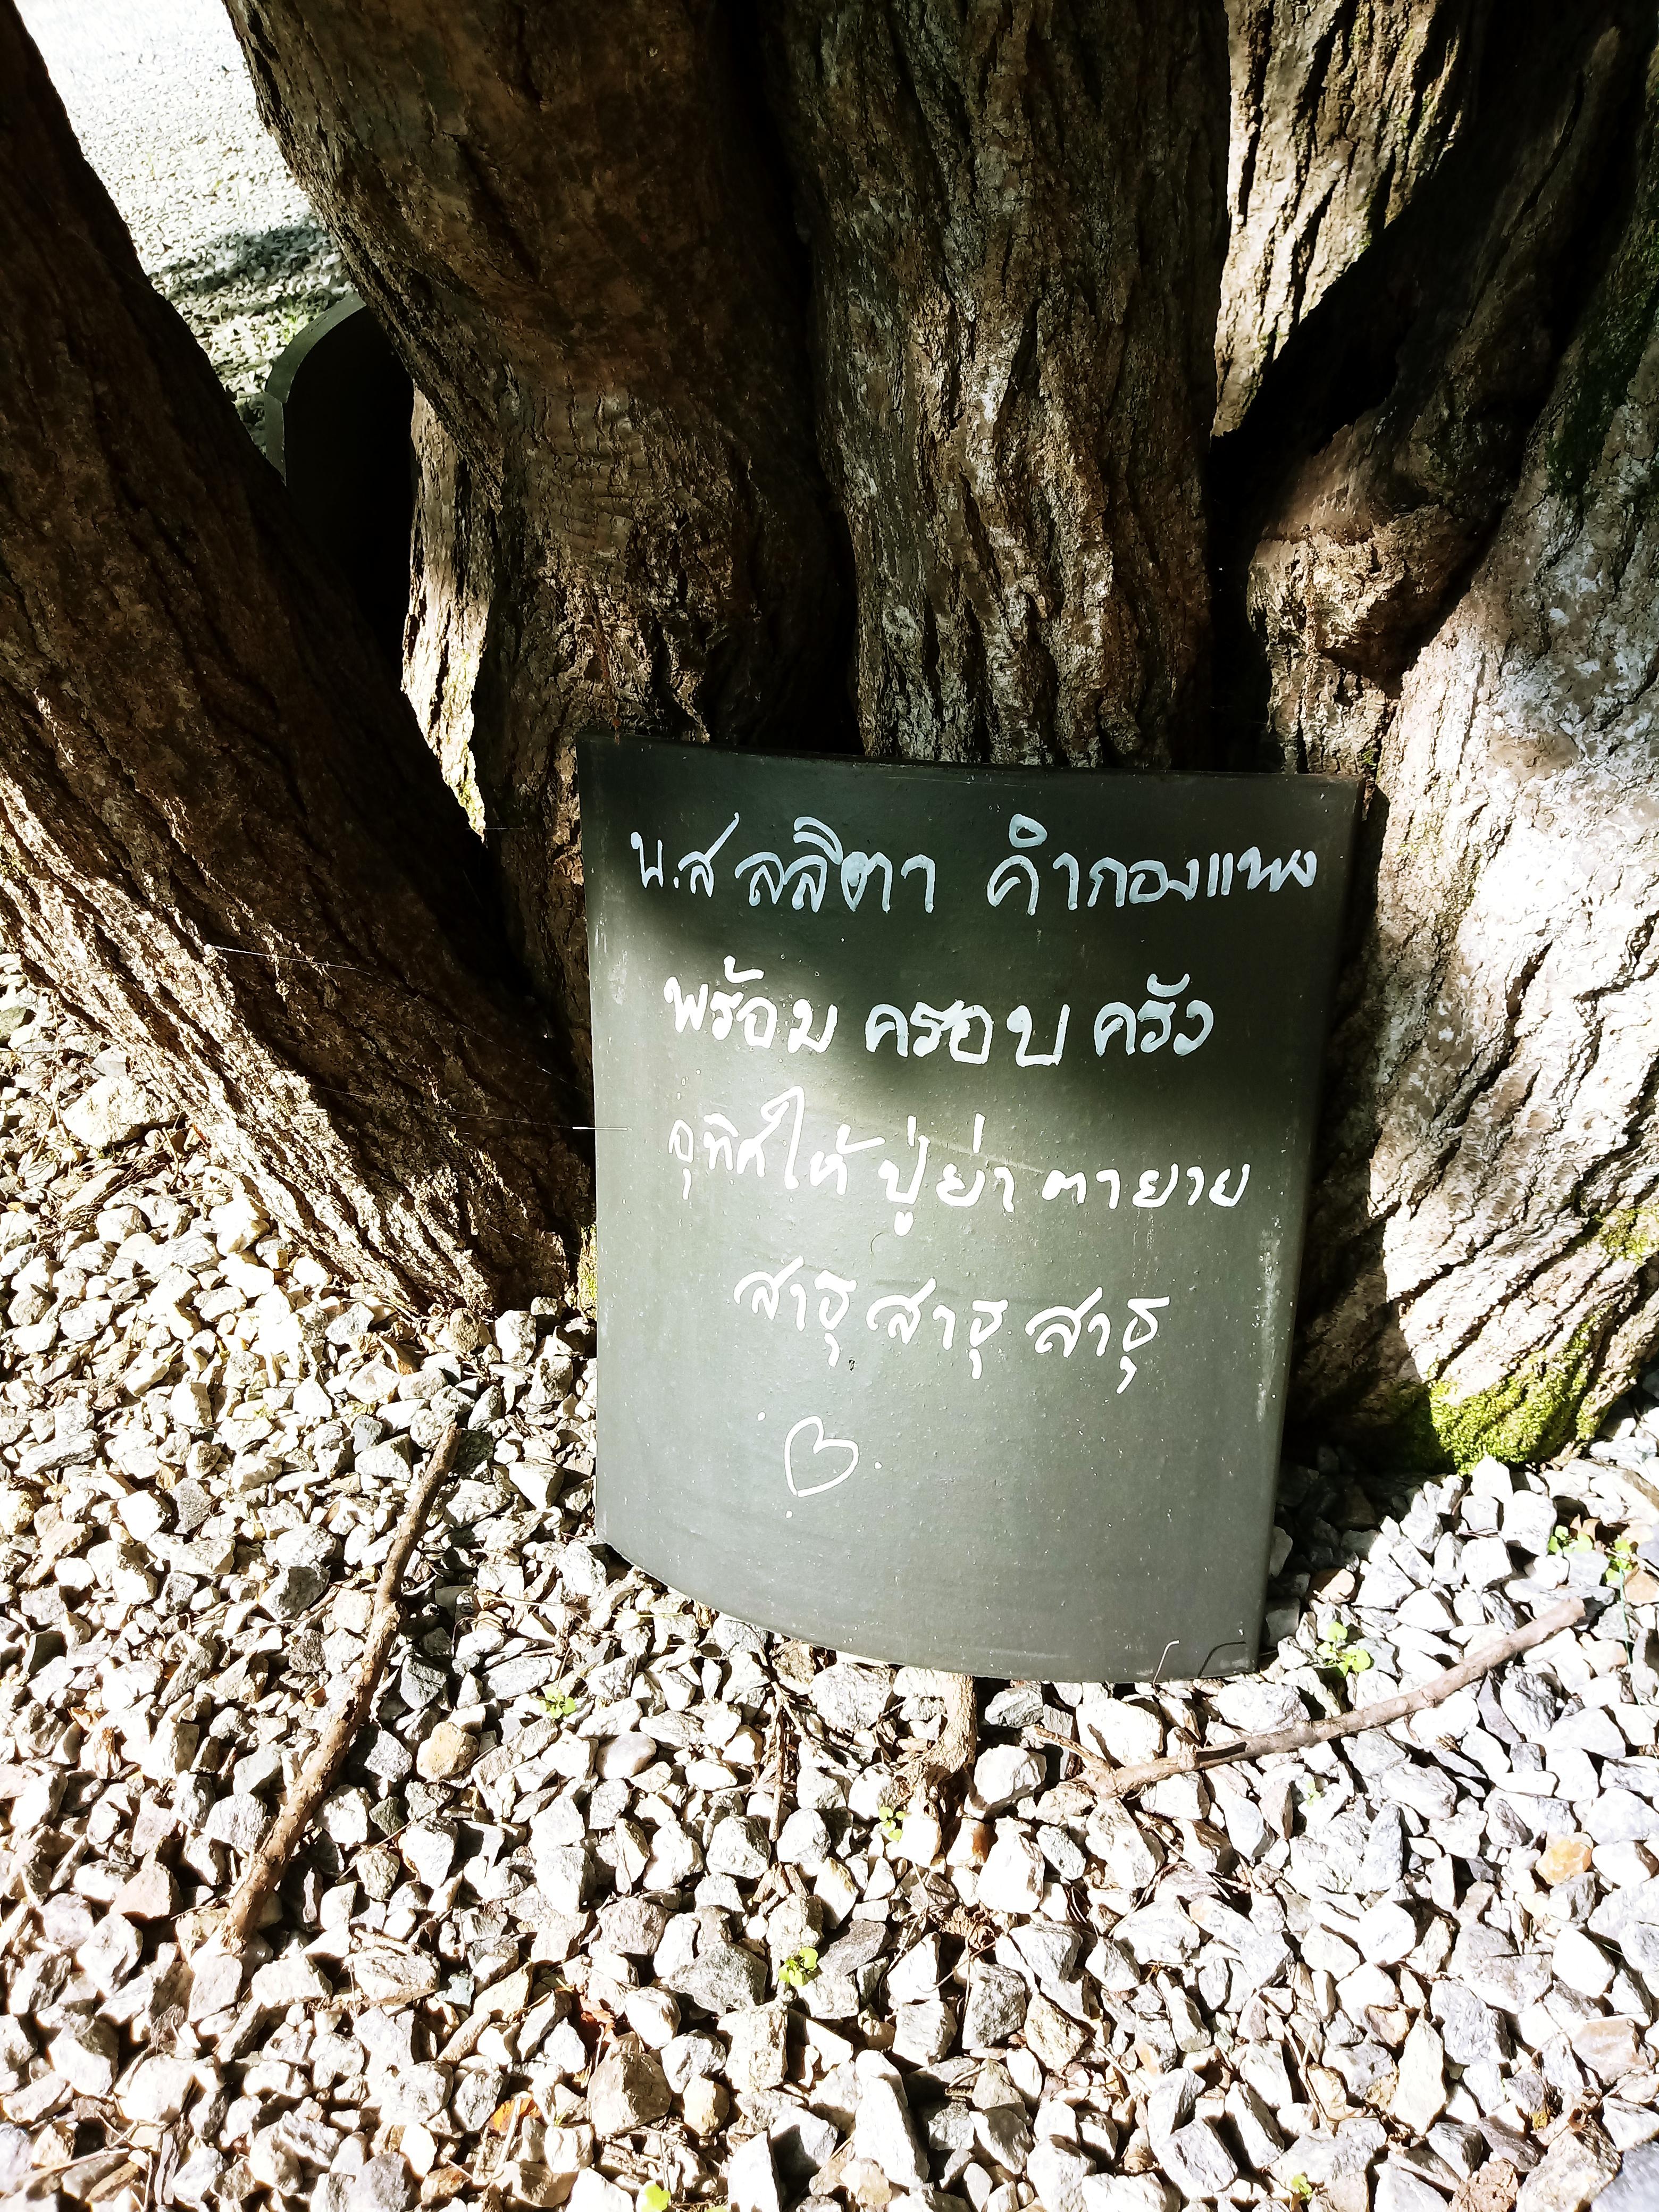 น.ส ลลิตา คำกองแพง
พร้อม ครอบ ครัว
อุทิศให้ ปู่ ย่า ตา ยาย
สาธุ สาธุ สาธุ